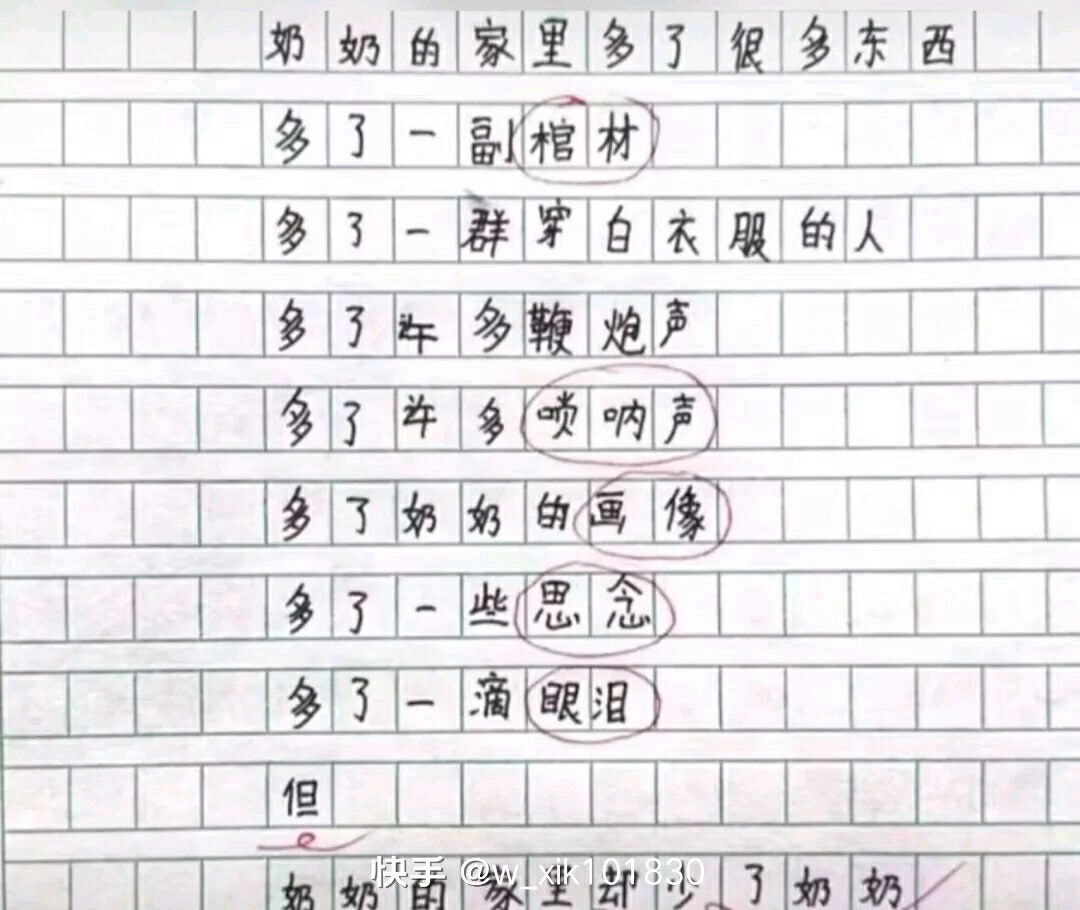 奶奶的家里多了很多东西
多了一副棺材
多了一群穿白衣服的人
多了许多鞭炮声
多了许多唢呐声
多了奶奶的画像
多了一些思念
多了一滴眼泪
但
奶奶的家里却少了奶奶
快手 @w_xik101830